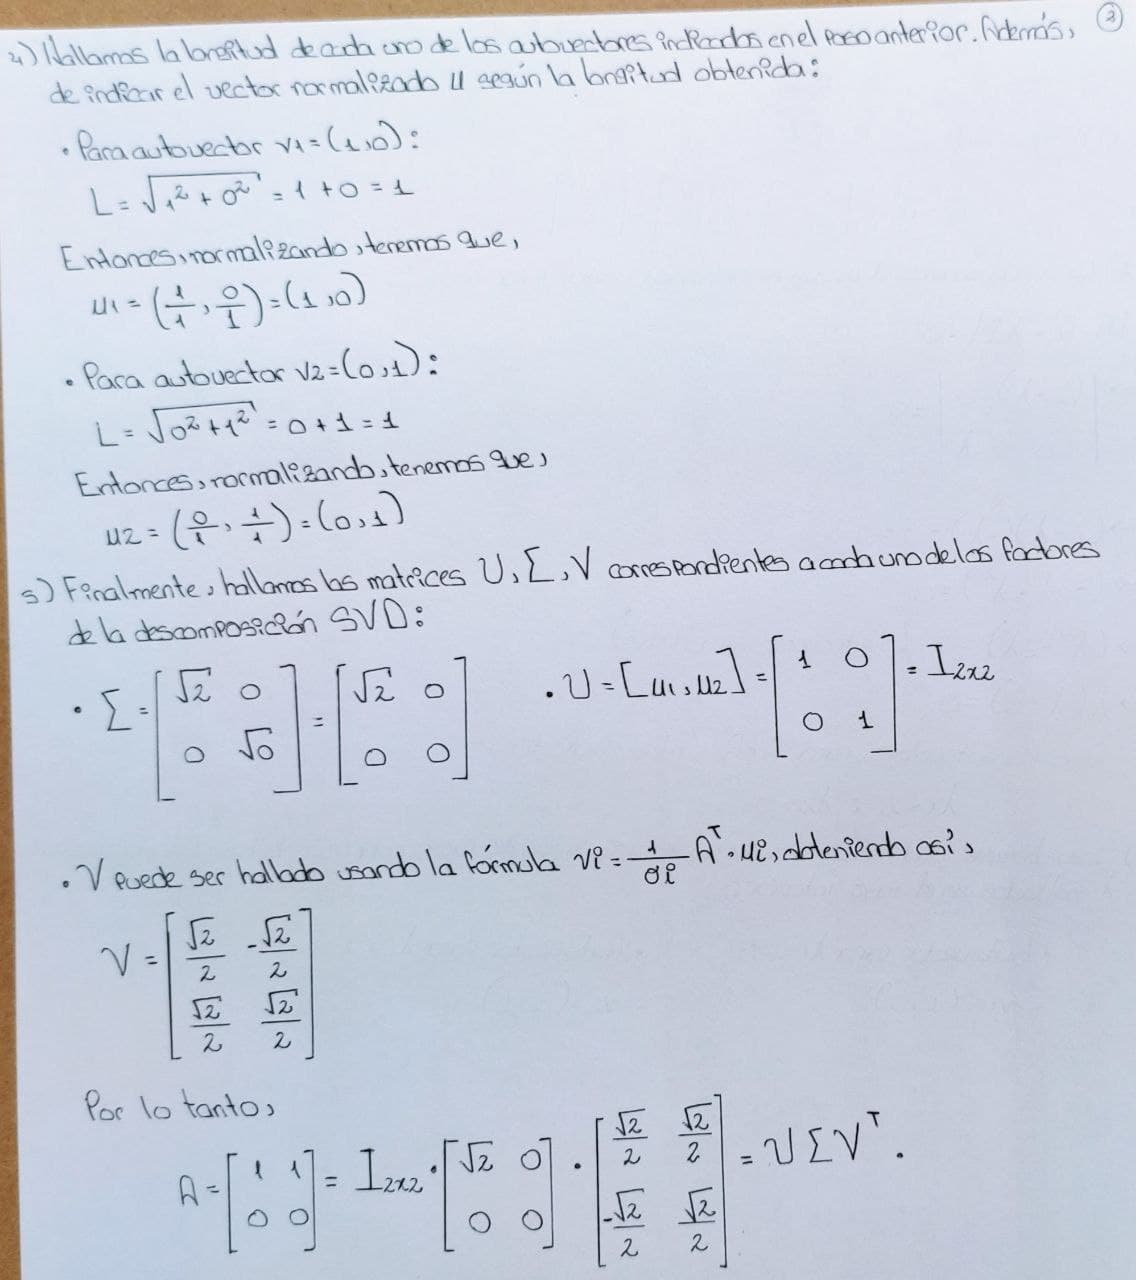 ②
4) Hallamos la longitud de cada uno de los autovectores indicados en el paso anterior. Además,
de indicar el vector normalizado u según la longitud obtenida:
• Para autovector v1 = (1,0):
L = √(1² + 0²) = 1 + 0 = 1
Entonces, normalizando, tenemos que,
u1 = (1/1, 0/1) = (1,0)
• Para autovector v2 = (0,1):
L = √(0² + 1²) = 0 + 1 = 1
Entonces, normalizando, tenemos que,
u2 = (0/1, 1/1) = (0,1)
5) Finalmente, hallamos las matrices U, Σ, V correspondientes a cada uno de los factores
de la descomposición SVD:
• Σ = [√2 0; 0 √0] = [√2 0; 0 0]
• U = [u1, u2] = [1 0; 0 1] = I2x2
• V puede ser hallado usando la fórmula vi = 1/σi Aᵀ · ui, obteniendo así,
V = [√2/2 -√2/2; √2/2 √2/2]
Por lo tanto,
A = [1 1; 0 0] = I2x2 · [√2 0; 0 0] · [√2/2 √2/2; -√2/2 √2/2] = U Σ Vᵀ.